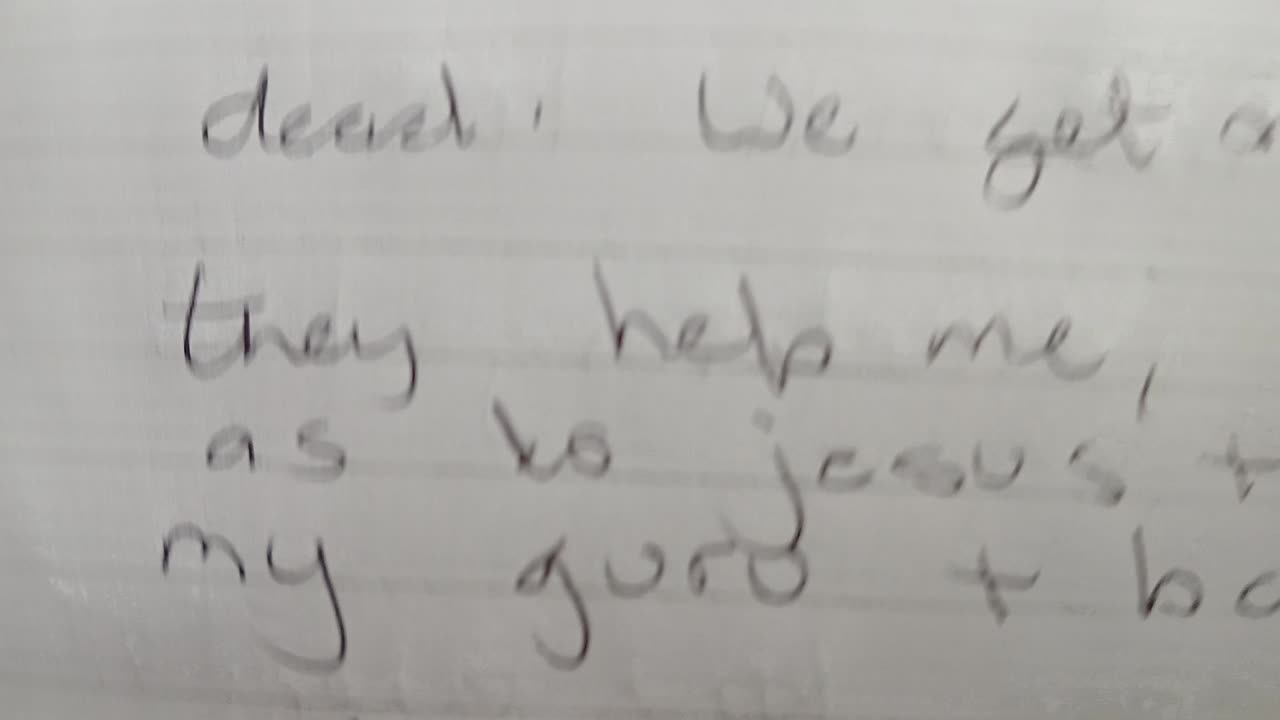 dead. We get a
they help me,
as to jesus +
my guro + bo